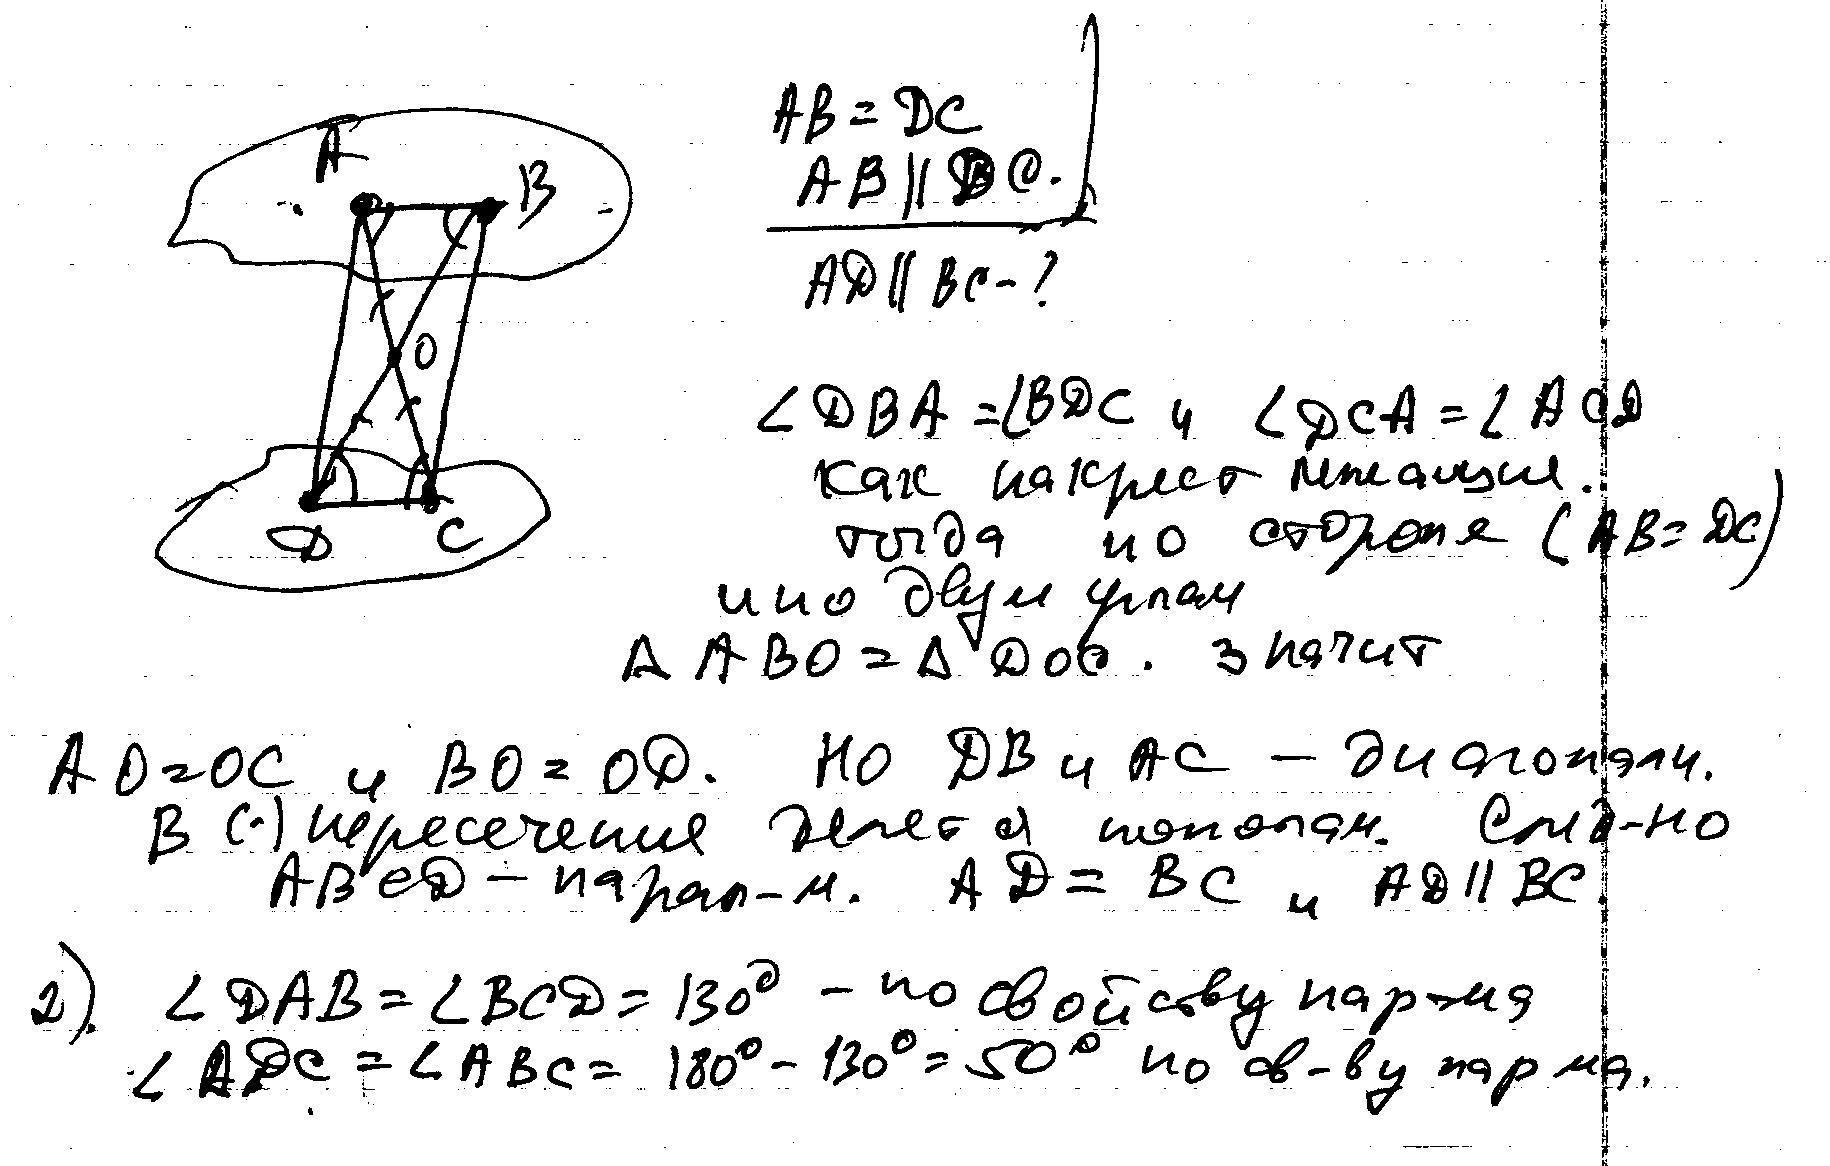 A
B
O
D
C
AB = DC
AB || DC.
AD || BC - ?
∠DBA = ∠BDC и ∠DCA = ∠ACD
как накрест лежащие.
тогда по стороне (AB = DC)
и по двум углам
Δ ABO = Δ DOC. значит
AO = OC и BO = OD. Но DB и AC – диагонали.
В (·) пересечения делятся пополам. След-но
ABCD – парал-м. AD = BC и AD || BC.
2). ∠DAB = ∠BCD = 130° – по свойству пар-ма
∠ADC = ∠ABC = 180° - 130° = 50° по св-ву пар ма.